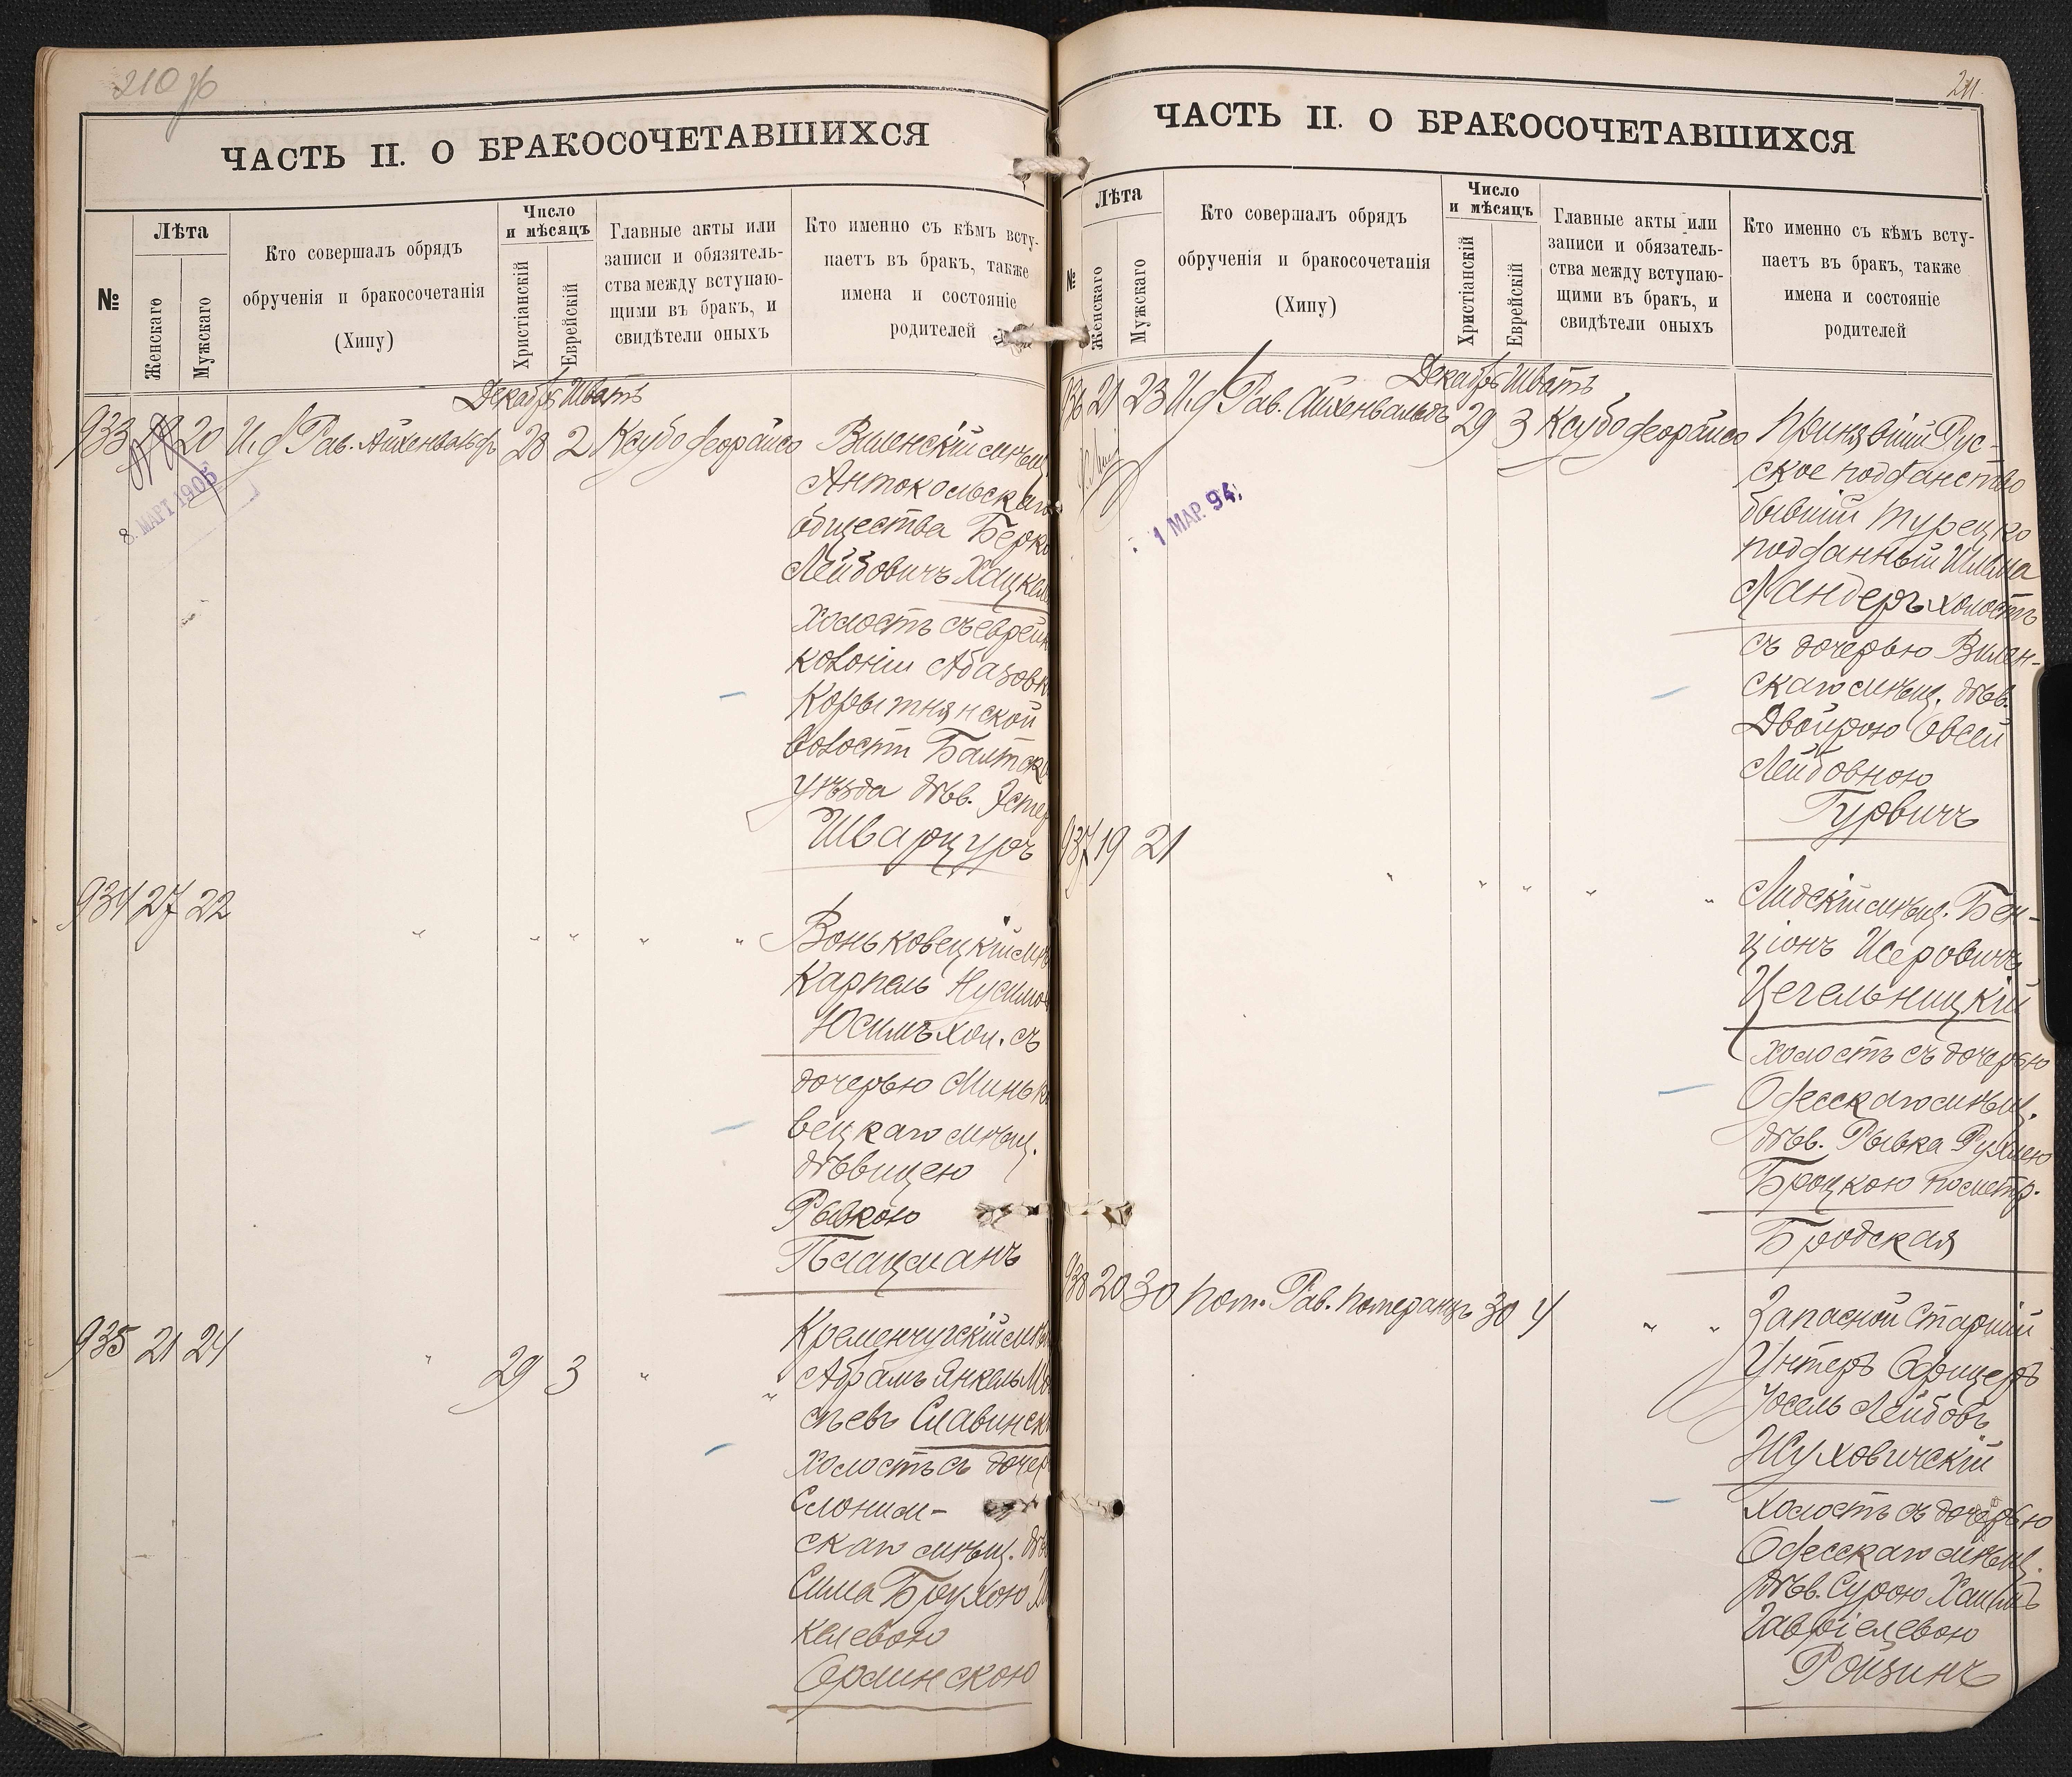 210 об
ЧАСТЬ II. О БРАКОСОЧЕТАВШИХСЯ
№
Лѣта
Женскаго
Мужскаго
Кто совершалъ обрядъ
обрученія и бракосочетанія
(Хипу)
Число
и мѣсяцъ
Христіанскій
Еврейскій
Главные акты или
записи и обязатель-
ства между вступаю-
щими въ бракъ, и
свидѣтели оныхъ
Кто именно съ кѣмъ всту-
паетъ въ бракъ, также
имена и состояніе
родителей
Декабрь Шватъ
933 20 И.д Рав. Айхенвальдъ 28 2 Ксубо феорайсо Виленскій мѣщ
Антокольскаго
общества Берко
Лейбовичъ Хацкел
холостъ съ еврейк
колоніи Абазовк
Корытнянской
волости Балтск
уѣзда дѣв. Эстер
Шварцуръ
8. МАРТ 1905
934 27 22 " " " " " Воньковецкій мѣ
Карпель Нусимов
Юсимъ хол. съ
дочерью Миньк
вецкаго мѣщ.
дѣвицею
Рывкою
Плацманъ
935 21 24 " 29 3 " " Кременчугскій мѣщ
Абрамъ Янкель Мо
съевъ Славинск
холостъ съ дочер
Слоним-
скаго мѣщ. дѣ
Сима Брухою
келевою
Орлинскою
211.
ЧАСТЬ II. О БРАКОСОЧЕТАВШИХСЯ
№
Лѣта
Женскаго
Мужскаго
Кто совершалъ обрядъ
обрученія и бракосочетанія
(Хипу)
Число
и мѣсяцъ
Христіанскій
Еврейскій
Главные акты или
записи и обязатель-
ства между вступаю-
щими въ бракъ, и
свидѣтели оныхъ
Кто именно съ кѣмъ всту-
паетъ въ бракъ, также
имена и состояніе
родителей
Декабрь Шватъ
936 21 23 И.д Рав. Айхенвальдъ 29 3 Ксубо феорайсо Принявшій Рус-
ское подданство
бывшій турецко
подданный Шлема
Мандеръ холостъ
съ дочерью Вилен-
скаго мѣщ. дѣв.
Двойрою Овсей
Лейбовною
Гурвичъ
1 МАР. 94.
937 19 21 " " " " " Лидскій мѣщ. Бен-
ціонъ Исеровичъ
Цегельницкій
холостъ съ дочерью
Одесскаго мѣщ.
дѣв. Рывка Рухлею
Броцкою по метр.
Бродская
938 20 30 пом. Рав. Померанцъ 30 4 " " Запасной Старшій
Унтеръ Офицеръ
Іосель Лейбовъ
Жуховичскій
холостъ съ дочерью
Одесскаго мѣщ
дѣв. Сурою Хаимъ
Гавріелевою
Ройзинъ